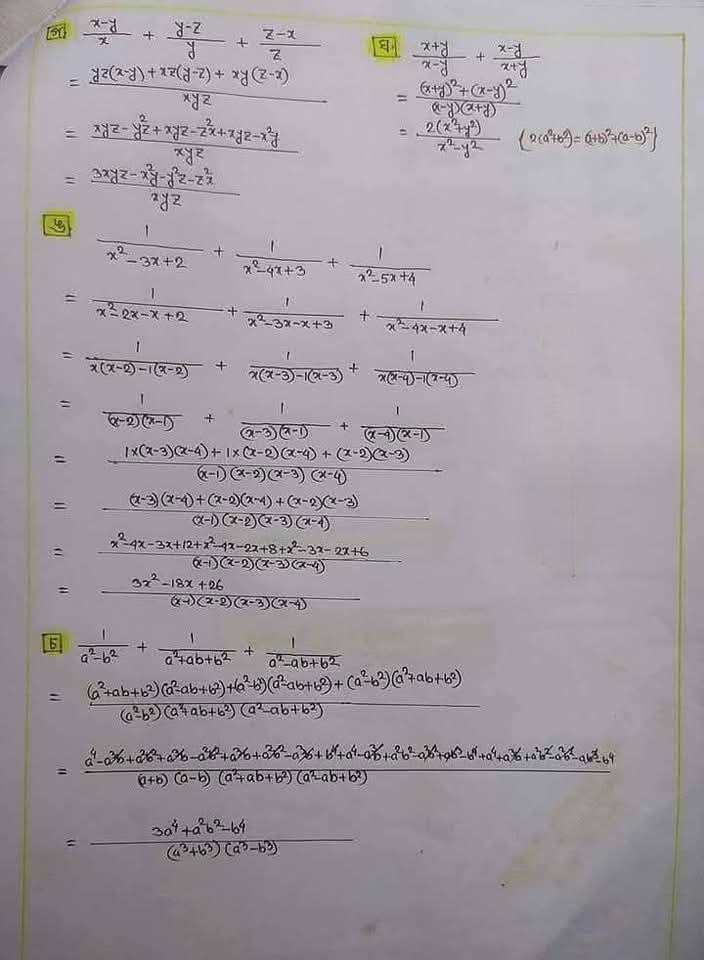 গ. (x-y)/x + (y-z)/y + (z-x)/z
= (yz(x-y)+xz(y-z)+xy(z-x))/xyz
= (xyz-y²z+xyz-z²x+xyz-x²y)/xyz
= (3xyz-x²y-y²z-z²x)/xyz
ঘ. (x+y)/(x-y) + (x-y)/(x+y)
= ((x+y)²+(x-y)²)/((x-y)(x+y))
= 2(x²+y²)/(x²-y²) {2(a²+b²)=(a+b)²+(a-b)²}
ঙ 1/(x²-3x+2) + 1/(x²-4x+3) + 1/(x²-5x+4)
= 1/(x²-2x-x+2) + 1/(x²-3x-x+3) + 1/(x²-4x-x+4)
= 1/(x(x-2)-1(x-2)) + 1/(x(x-3)-1(x-3)) + 1/(x(x-4)-1(x-4))
= 1/((x-2)(x-1)) + 1/((x-3)(x-1)) + 1/((x-4)(x-1))
= (1×(x-3)(x-4)+1×(x-2)(x-4)+(x-2)(x-3))/((x-1)(x-2)(x-3)(x-4))
= ((x-3)(x-4)+(x-2)(x-4)+(x-2)(x-3))/((x-1)(x-2)(x-3)(x-4))
= (x²-4x-3x+12+x²-4x-2x+8+x²-3x-2x+6)/((x-1)(x-2)(x-3)(x-4))
= (3x²-18x+26)/((x-1)(x-2)(x-3)(x-4))
চ 1/(a²-b²) + 1/(a²+ab+b²) + 1/(a²-ab+b²)
= ((a²+ab+b²)(a²-ab+b²)+(a²-b²)(a²-ab+b²)+(a²-b²)(a²+ab+b²))/((a²-b²)(a²+ab+b²)(a²-ab+b²))
= /((a+b)(a-b)(a²+ab+b²)(a²-ab+b²))
= (3a⁴+a²b²-b⁴)/((a³+b³)(a³-b³))